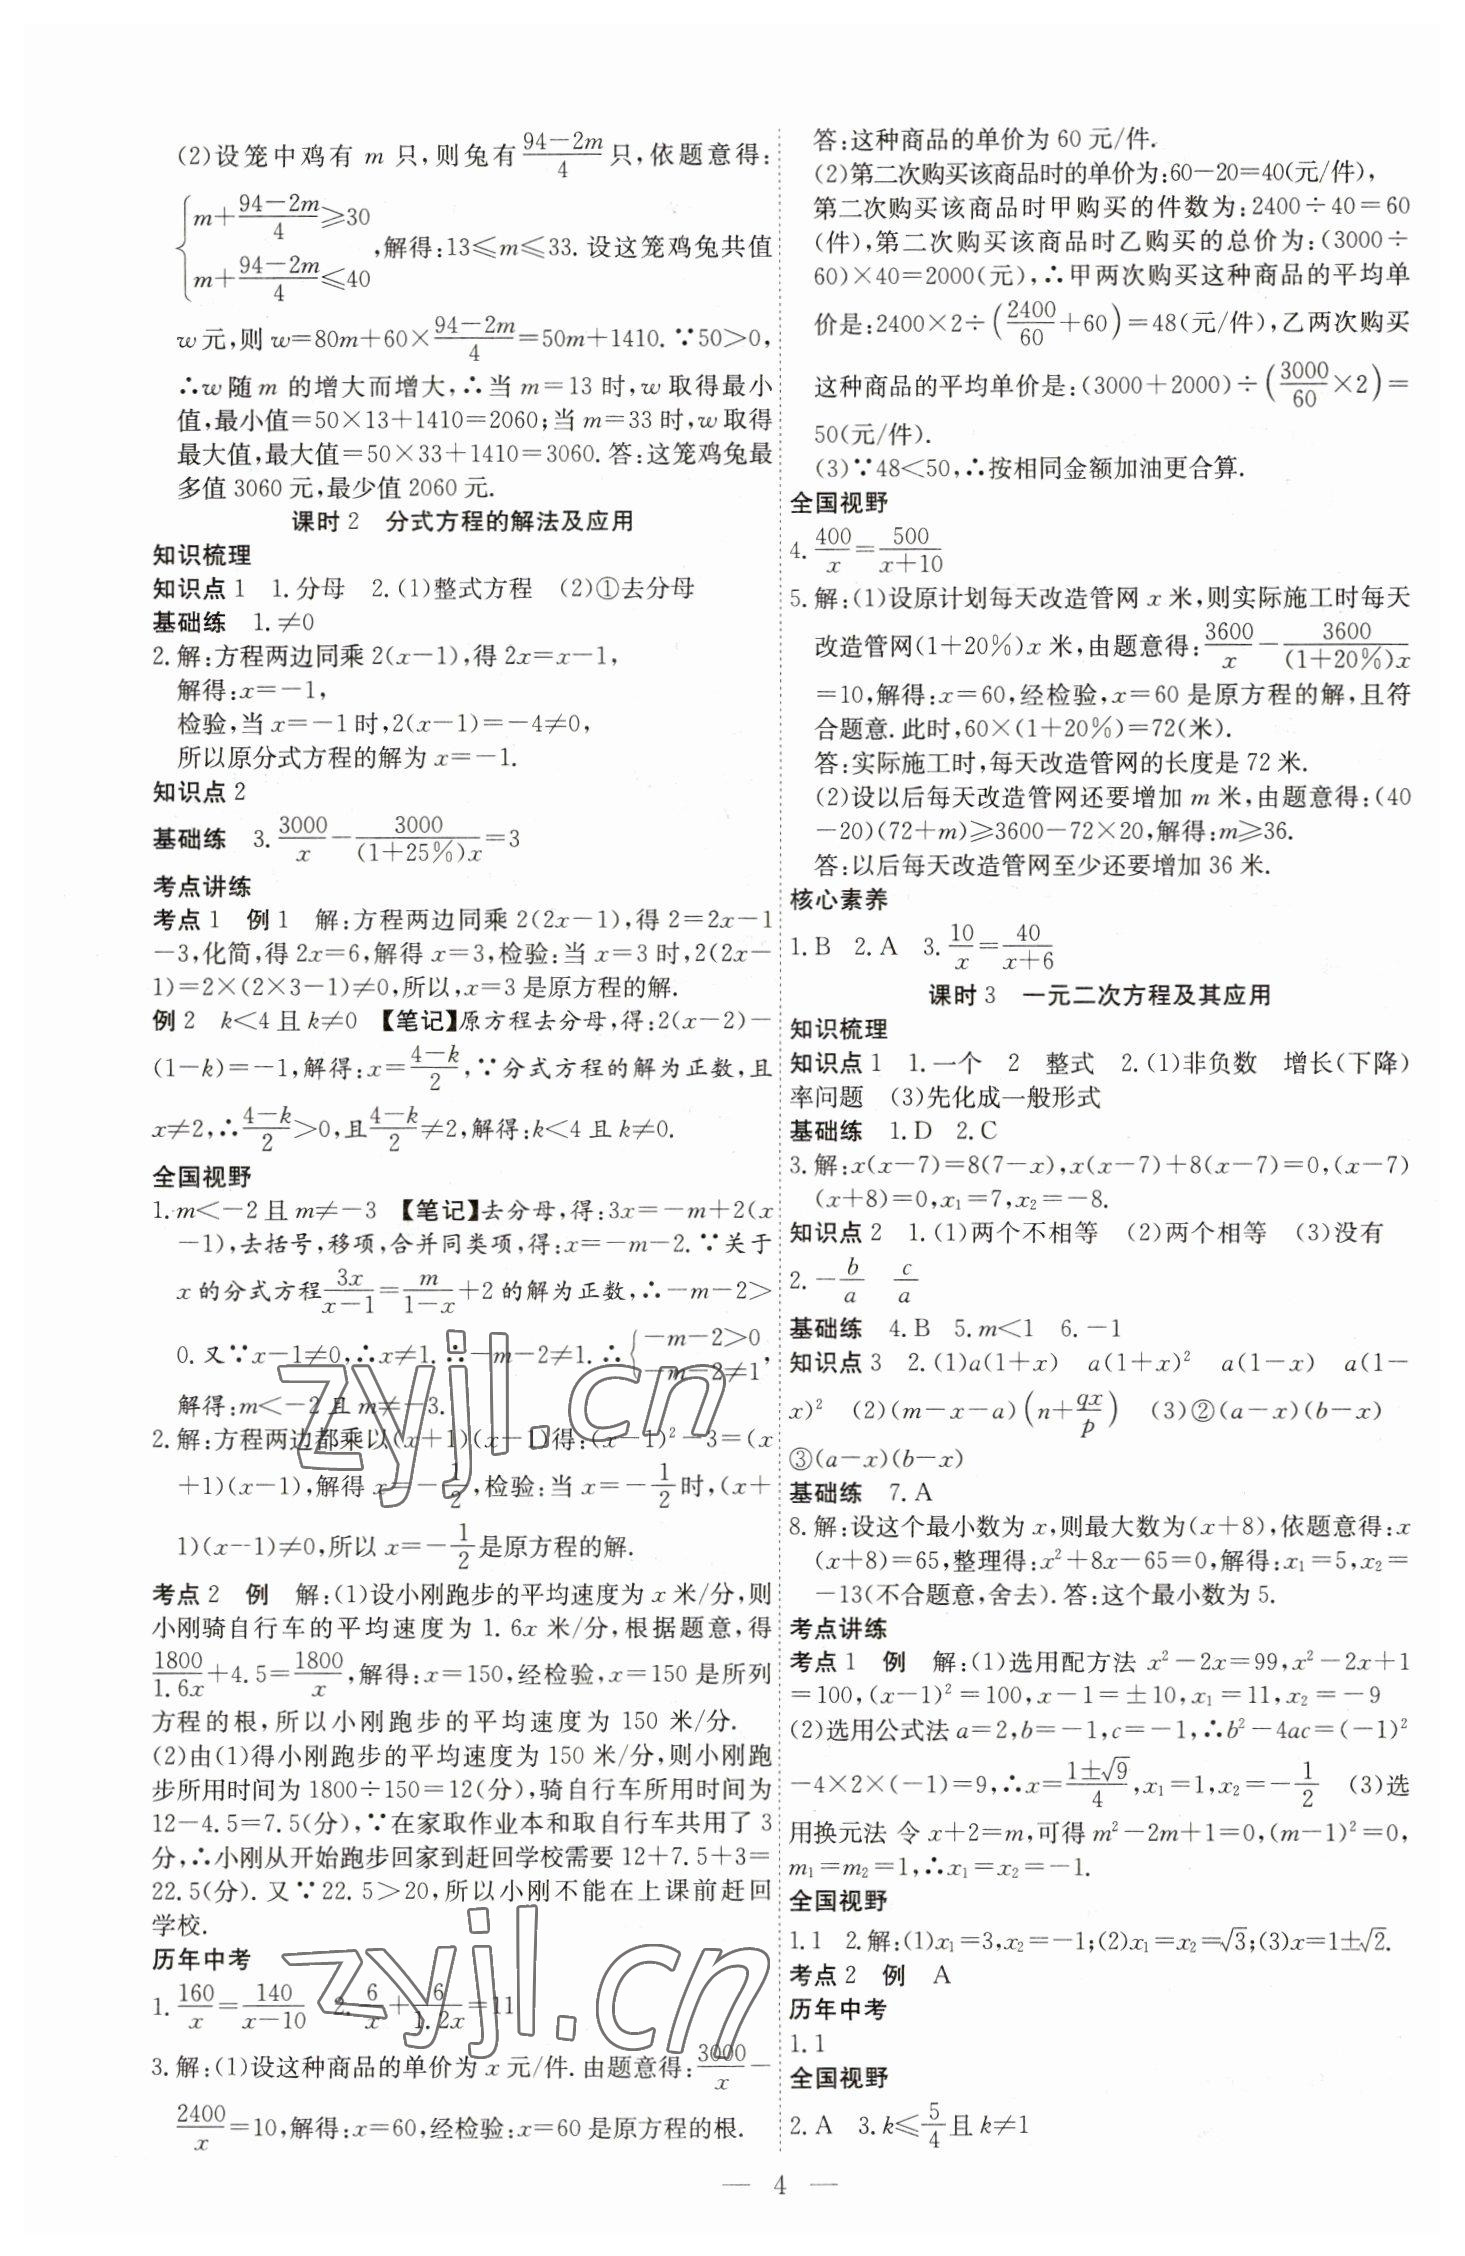 (2)设笼中鸡有 m 只,则兔有\frac{94-2m}{4}只,依题意得:
{m+\frac{94-2m}{4}≥30
m+\frac{94-2m}{4}≤40 ,解得:13≤m≤33. 设这笼鸡兔共值
w元,则 w=80m+60×\frac{94-2m}{4}=50m+1410. ∵50>0,
∴w 随 m 的增大而增大,∴当 m=13 时,w取得最小
值,最小值=50×13+1410=2060;当 m=33 时,w取得
最大值,最大值=50×33+1410=3060. 答:这笼鸡兔最
多值 3060 元,最少值 2060 元.
课时 2 分式方程的解法及应用
知识梳理
知识点 1 1.分母 2.(1)整式方程 (2)①去分母
基础练 1.≠0
2.解:方程两边同乘 2(x-1),得 2x=x-1,
解得:x=-1,
检验,当 x=-1时,2(x-1)=-4≠0,
所以原分式方程的解为 x=-1.
知识点 2
基础练 3.\frac{3000}{x}-\frac{3000}{(1+25%)x}=3
考点讲练
考点 1 例 1 解:方程两边同乘 2(2x-1),得 2=2x-1
-3,化简,得 2x=6,解得 x=3,检验:当 x=3 时,2(2x-
1)=2×(2×3-1)≠0,所以,x=3是原方程的解.
例 2 k<4 且 k≠0 【笔记】原方程去分母,得:2(x-2)-
(1-k)=-1,解得:x=\frac{4-k}{2},∵分式方程的解为正数,且
x≠2,∴\frac{4-k}{2}>0,且\frac{4-k}{2}≠2,解得:k<4 且 k≠0.
全国视野
1.m<-2且m≠-3 【笔记】去分母,得:3x=-m+2(x
-1),去括号,移项,合并同类项,得:x=-m-2. ∵关于
x的分式方程\frac{3x}{x-1}=\frac{m}{1-x}+2的解为正数,∴-m-2>
0. 又∵x-1≠0,∴x≠1. ∴-m-2≠1. ∴{-m-2>0
-m-2≠1,
解得:m<-2 且 m≠-3.
2.解:方程两边都乘以(x+1)(x-1)得:(x-1)²-3=(x
+1)(x-1),解得 x=-\frac{1}{2},检验:当 x=-\frac{1}{2}时,(x+
1)(x-1)≠0,所以 x=-\frac{1}{2}是原方程的解.
考点 2 例 解:(1)设小刚跑步的平均速度为 x 米/分,则
小刚骑自行车的平均速度为 1.6x 米/分,根据题意,得
\frac{1800}{1.6x}+4.5=\frac{1800}{x},解得:x=150,经检验,x=150 是所列
方程的根,所以小刚跑步的平均速度为 150 米/分.
(2)由(1)得小刚跑步的平均速度为 150 米/分,则小刚跑
步所用时间为 1800÷150=12(分),骑自行车所用时间为
12-4.5=7.5(分),∵在家取作业本和取自行车共用了 3
分,∴小刚从开始跑步回家到赶回学校需要 12+7.5+3=
22.5(分). 又∵22.5>20,所以小刚不能在上课前赶回
学校.
历年中考
1.\frac{160}{x}=\frac{140}{x-10} 2.\frac{6}{x}+\frac{6}{1.2x}=11
3.解:(1)设这种商品的单价为 x 元/件. 由题意得:\frac{3000}{x}-
\frac{2400}{x}=10,解得:x=60,经检验:x=60是原方程的根.
答:这种商品的单价为 60 元/件.
(2)第二次购买该商品时的单价为:60-20=40(元/件),
第二次购买该商品时甲购买的件数为:2400÷40=60
(件),第二次购买该商品时乙购买的总价为:(3000÷
60)×40=2000(元),∴甲两次购买这种商品的平均单
价是:2400×2÷(\frac{2400}{60}+60)=48(元/件),乙两次购买
这种商品的平均单价是:(3000+2000)÷(\frac{3000}{60}×2)=
50(元/件).
(3)∵48<50,∴按相同金额加油更合算.
全国视野
4.\frac{400}{x}=\frac{500}{x+10}
5.解:(1)设原计划每天改造管网 x 米,则实际施工时每天
改造管网(1+20%)x 米,由题意得:\frac{3600}{x}-\frac{3600}{(1+20%)x}
=10,解得:x=60,经检验,x=60 是原方程的解,且符
合题意. 此时,60×(1+20%)=72(米).
答:实际施工时,每天改造管网的长度是 72 米.
(2)设以后每天改造管网还要增加 m 米,由题意得:(40
-20)(72+m)≥3600-72×20,解得:m≥36.
答:以后每天改造管网至少还要增加 36 米.
核心素养
1.B 2.A 3.\frac{10}{x}=\frac{40}{x+6}
课时 3 一元二次方程及其应用
知识梳理
知识点 1 1.一个 2 整式 2.(1)非负数 增长(下降)
率问题 (3)先化成一般形式
基础练 1.D 2.C
3.解:x(x-7)=8(7-x),x(x-7)+8(x-7)=0,(x-7)
(x+8)=0,x₁=7,x₂=-8.
知识点 2 1.(1)两个不相等 (2)两个相等 (3)没有
2.-\frac{b}{a} \frac{c}{a}
基础练 4.B 5.m<1 6.-1
知识点 3 2.(1)a(1+x) a(1+x)² a(1-x) a(1-
x)² (2)(m-x-a)(n+\frac{qx}{p}) (3)②(a-x)(b-x)
③(a-x)(b-x)
基础练 7.A
8.解:设这个最小数为 x,则最大数为(x+8),依题意得:x
(x+8)=65,整理得:x²+8x-65=0,解得:x₁=5,x₂=
-13(不合题意,舍去). 答:这个最小数为 5.
考点讲练
考点 1 例 解:(1)选用配方法 x²-2x=99,x²-2x+1
=100,(x-1)²=100,x-1=±10,x₁=11,x₂=-9
(2)选用公式法 a=2,b=-1,c=-1,∴b²-4ac=(-1)²
-4×2×(-1)=9,∴x=\frac{1±√9}{4},x₁=1,x₂=-\frac{1}{2} (3)选
用换元法 令 x+2=m,可得 m²-2m+1=0,(m-1)²=0,
m₁=m₂=1,∴x₁=x₂=-1.
全国视野
1.1 2.解:(1)x₁=3,x₂=-1;(2)x₁=x₂=√3;(3)x=1±√2.
考点 2 例 A
历年中考
1.1
全国视野
2.A 3.k≤\frac{5}{4}且 k≠1
— 4 —
zyjl.cn
zyjl.cn